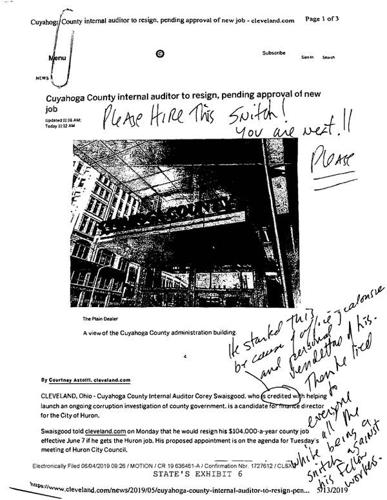 Cuyahoga County internal auditor to resign, pending approval of new job - cleveland.com
Page 1 of 3
Menu
Subscribe
Sign In
Search
NEWS
Cuyahoga County internal auditor to resign, pending approval of new
job
Updated 11:36 AM;
Today 11:32 AM
PLEASE HIRE THIS Snitch!
You are next.!!
PLEASE
COUNTY
The Plain Dealer
A view of the Cuyahoga County administration building.
4
He started this
because of office jealousie
and personal
vendettas of his.
Than he tried
to
everyone
all the
while being a
snitch against
his fellow
workers.
By Courtney Astolfi, cleveland.com
CLEVELAND, Ohio - Cuyahoga County Internal Auditor Corey Swaisgood, who is credited with helping
launch an ongoing corruption investigation of county government, is a candidate for finance director
for the City of Huron.
Swaisgood told cleveland.com on Monday that he would resign his $104,000-a-year county job
effective June 7 if he gets the Huron job. His proposed appointment is on the agenda for Tuesday's
meeting of Huron City Council.
Electronically Filed 06/04/2019 09:26 / MOTION / CR 19 636461-A / Confirmation Nbr. 1727612 /
STATE'S EXHIBIT 6
https://www.cleveland.com/news/2019/05/cuyahoga-county-internal-auditor-to-resign-pen...